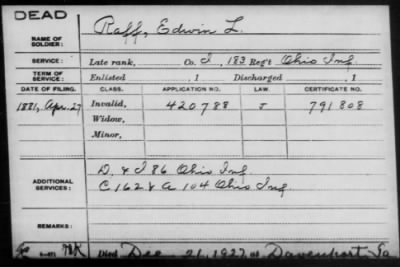 DEAD
NAME OF SOLDIER: Raff, Edwin L.
SERVICE: Late rank, Co. I, 183 Reg't Ohio Inf
TERM OF SERVICE: Enlisted , 1 Discharged , 1
DATE OF FILING. CLASS. APPLICATION NO. LAW. CERTIFICATE NO.
1881, Apr. 27 Invalid, 420788 J 791808
Widow,
Minor,
ADDITIONAL SERVICES: D. & I 86 Ohio Inf
C 162 & A 104 Ohio Inf
REMARKS:
Died Dec. 21, 1927 at Davenport Ia